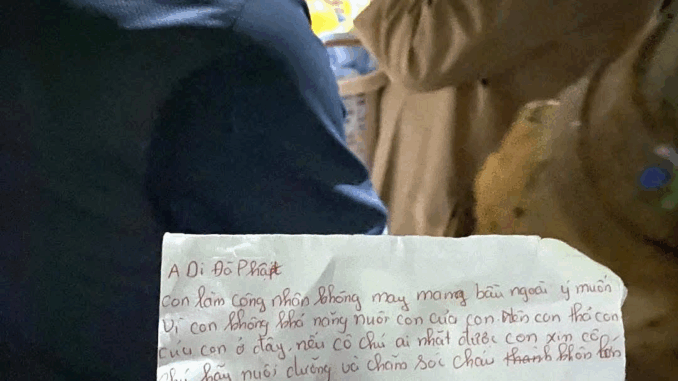 A Di Đà Phật
con làm công nhân không may mang bầu ngoài ý muốn
Vì con không khả năng nuôi con của con nên con thả con
của con ở đây. nếu cô chú ai nhặt được con xin cô
chú hãy nuôi dưỡng và chăm sóc cháu thanh khôn lớn